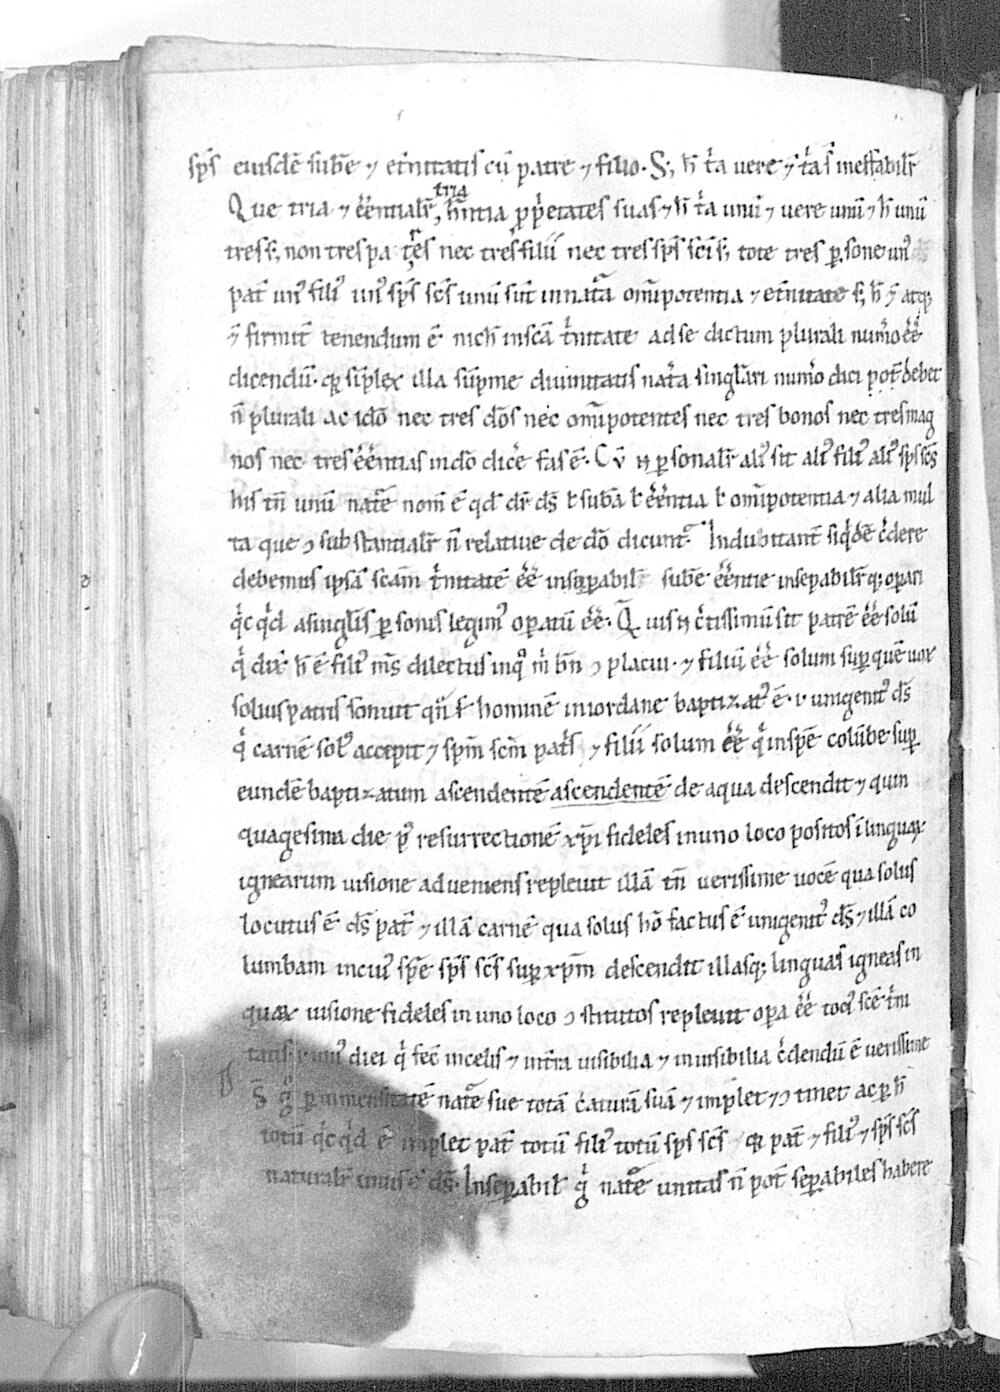 sp̅s eiusdē sub̅e ⁊ et̅nitatis cū patre ⁊ filio. S; h̅ t̍a vere ⁊ t̍a s̅ ineffabilr̅
Que tria ⁊ ee̅ntialr̅, tria h̅ntia pp̍etates suas ⁊ h̅ t̍a unū ⁊ vere unū ⁊ h̅ unū
tres s̅; non tres pat̅es nec tres filii nec tres sp̅s sc̅i s̅; tote tres ꝑsone un᷒ d̅s
pat̅ un᷒ fili᷒ un᷒ sp̅s sc̅s unū sūt in nat̅a om̅ipotentia ⁊ et̅nitate s̅; h̅ atqꝫ
firmit̅ tenendum ē nich̅ in sc̅a t̍nitate ad se dictum plurali num̅o ee̅
dicendū. qꝛ sīplex illa sūpme diuinitatis nat̅a singl̅ari num̅o dici pot̅ debet
n̅ plurali ac id̅o nec tres d̅os nec om̅ipotentes nec tres bonos nec tres mag
nos nec tres ee̅ntias in d̅o dic̅e fas ē. Cū ꝑsonalr̅ ali᷒ sit ali᷒ fili᷒ ali᷒ sp̅s sc̅s
his tn̅ unū nat̅e nom̅ ē qd̅ dr̅ d̅s ł sub̅a ł ee̅ntia ł om̅ipotentia ⁊ alia mul
ta que ɔ substantialr̅ n̅ relatiue de d̅o dicunt᷒. Indubitant̅ siq̍dē c̍dere
debemus ipsā sc̅am t̍nitatē ee̅ insepꝑabil̅ sub̅e ee̅ntie insepabilr̅ qꝫ opari
q̍cq̍d a singl̅is ꝑsonis legim᷒ opatū ee̅. Q̅uis c̍tissimū sit patrē ee̅ solū
q̍ dix̅ h̅ ē fili᷒ m̅s dilectus inq᷒ m̍ bn̅ ɔplacui. ⁊ filiū ee̅ solum suꝑ quē uox
solius patris sonuit qn̅ s̅ hominē in iordane baptizat᷒ ē. unigenit᷒ d̅s
q̍ carnē sol᷒ accepit ⁊ sp̅m sc̅m pat̍s ⁊ filii solum ee̅ q̍ in sp̅e colūbe suꝑ
eundē baptizatum ascendentē ascendentē de aqua descendit ⁊ quin
quagesima die p᷒ resurrectionē xp̅i fideles in uno loco positos ī linguaꝝ
ignearum uisione adueniens repleuit illā tn̅ verissime uocē qua solus
locutus ē d̅s pat̅ ⁊ illā carnē qua solus h̅o factus ē unigenit᷒ d̅s ⁊ illā co
lumbam in cui᷒ sp̅e sp̅s sc̅s suꝑ xp̅m descendit illasqꝫ linguas igneas in
quaꝝ uisione fideles in uno loco ɔstitutos repleuit opa ee̅ toci᷒ sc̅e t̍ni
tatis. un᷒ diei q̍ fec̅ in celis ⁊ in t̅ra uisibilia ⁊ inuisibilia c̍dendū ē verissime
S; q̍ ꝑ inmensitatē nat̅e sue totā c̍aturā suā ⁊ īmplet ⁊ ɔtinet ac ꝑ h̅
totū q̍cq̍d ē implet pat̅ totū fili᷒ totū sp̅s sc̅s qꝛ pat̅ ⁊ fili᷒ ⁊ sp̅s sc̅s
naturalr̅ unus ē d̅s. Insepꝑabil̅ q̍ nat̅e unitas n̅ pot̅ sepꝑabiles habere